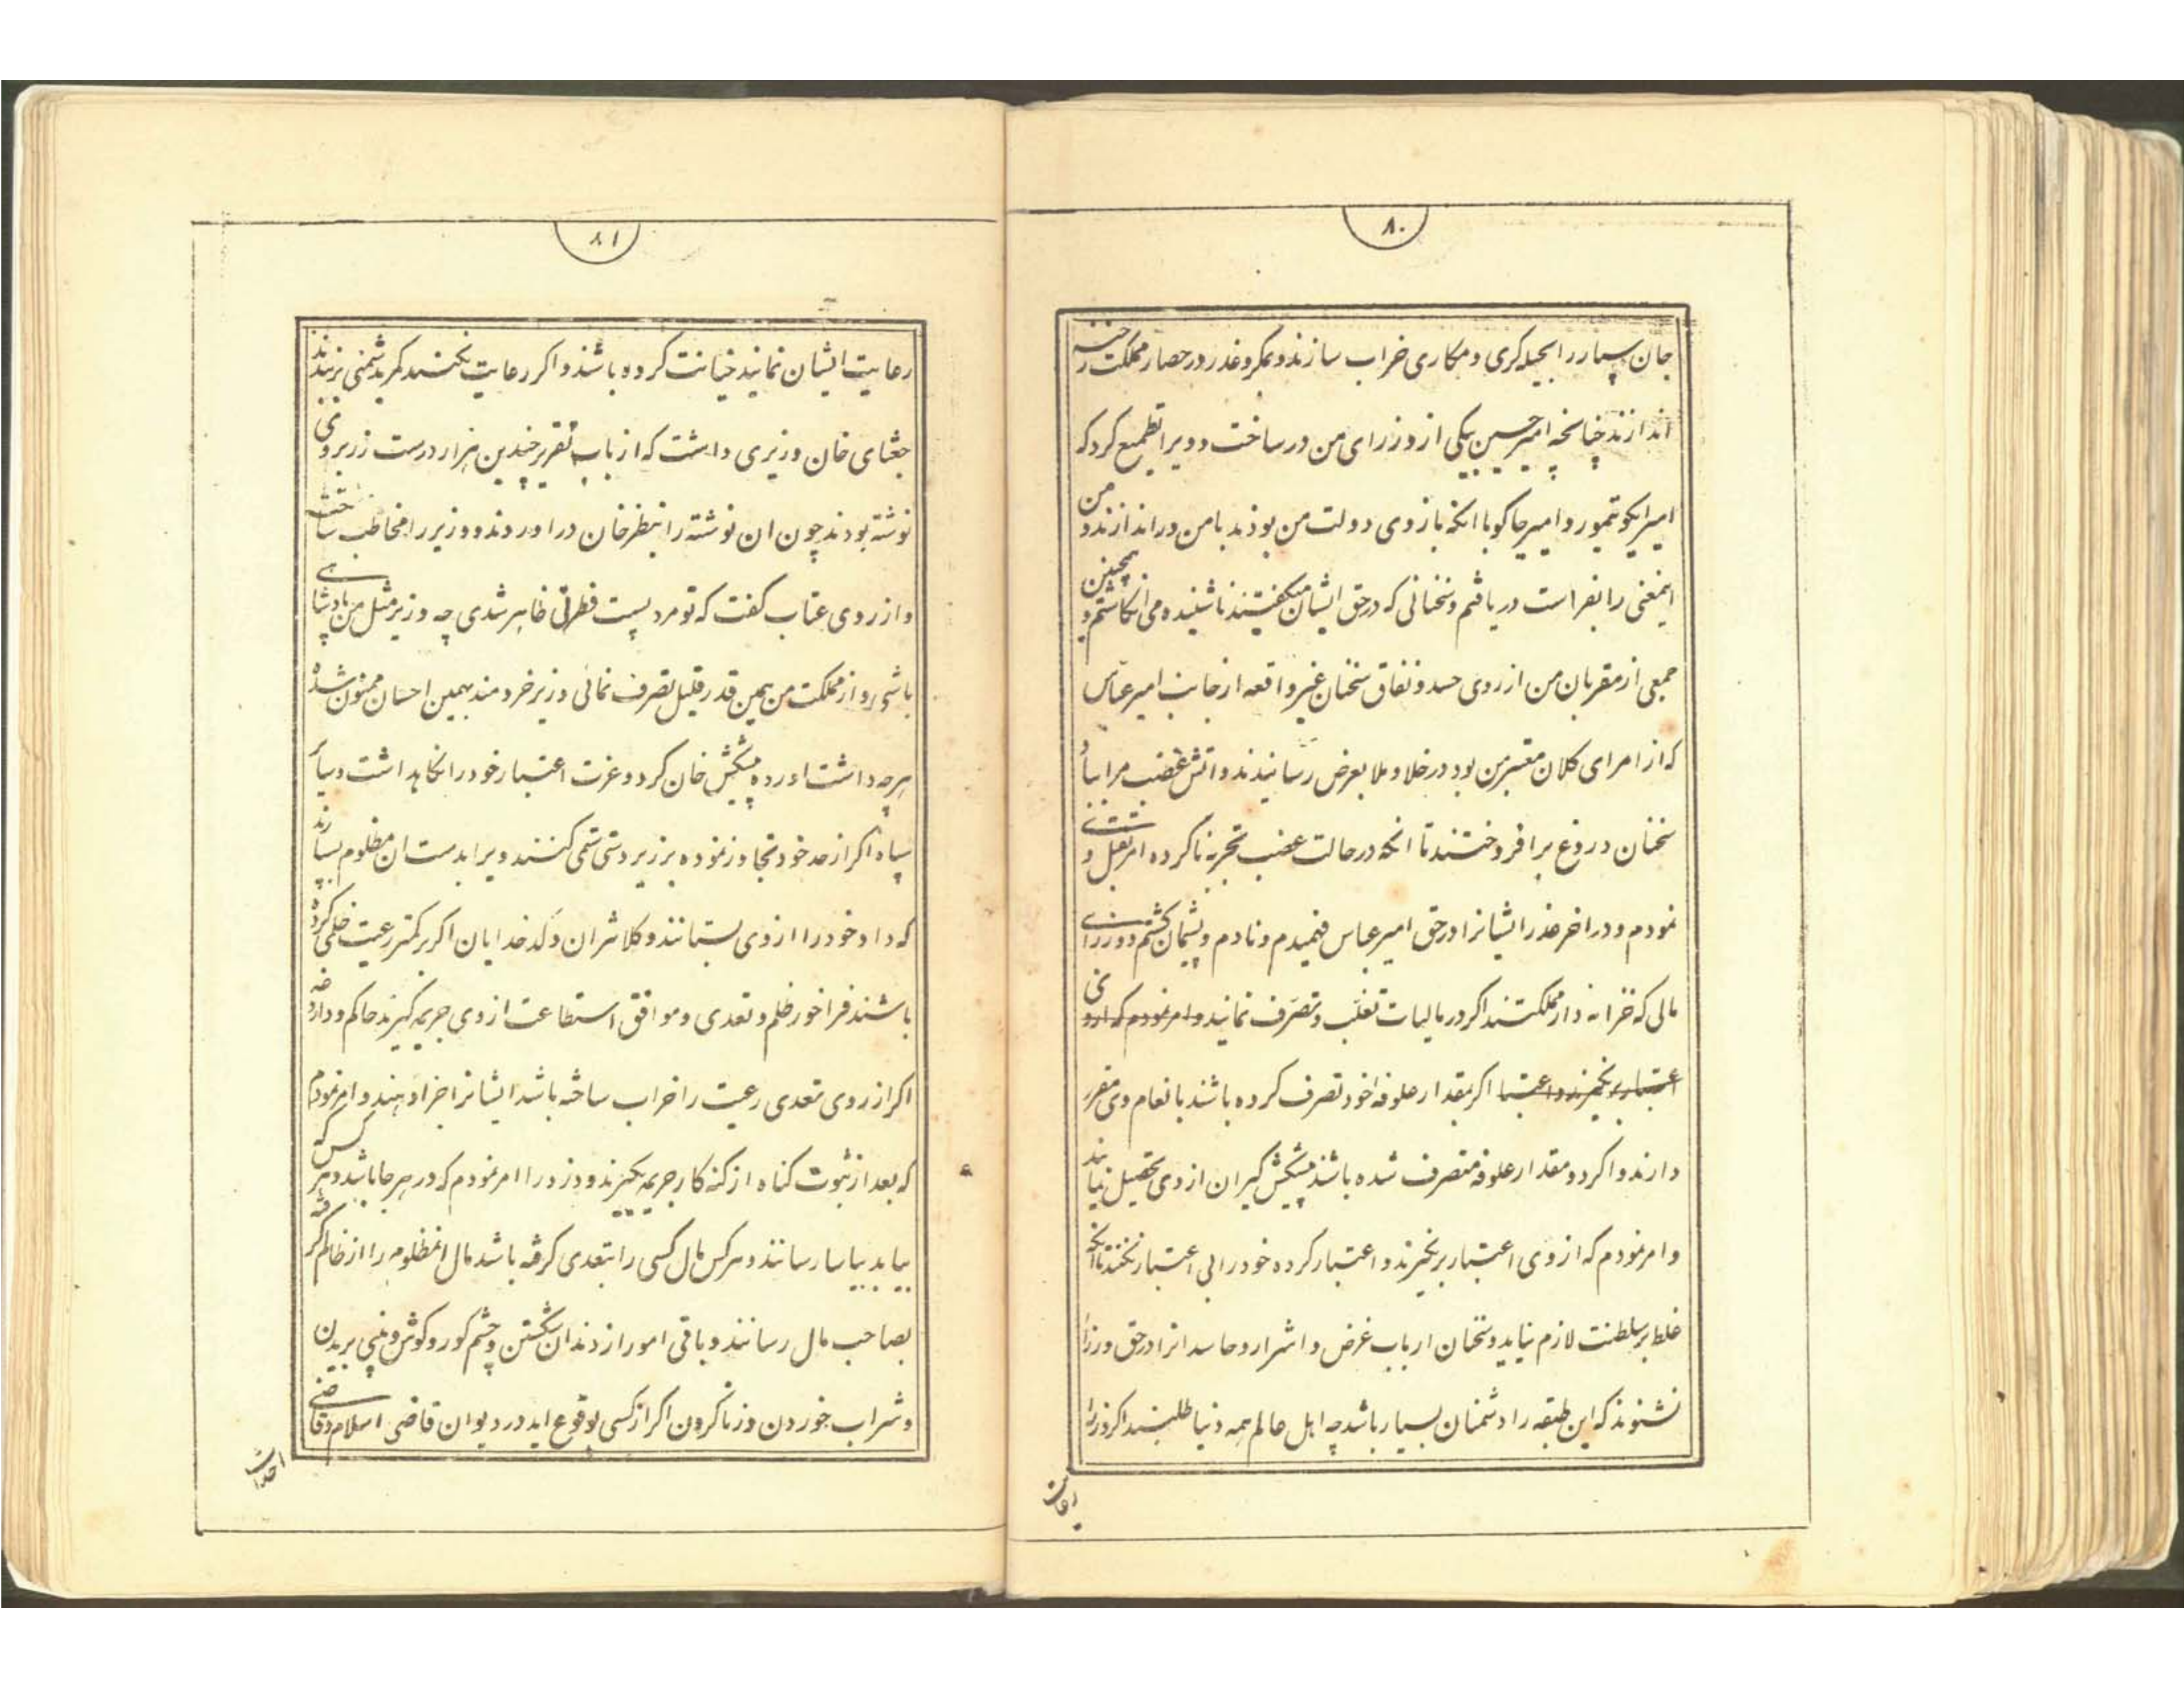 ۸۰
جان سپار را بحیله کری و مکاری خراب سازند و بمکر و غدر در حصار مملکت رخنه
اندازند چنانچه امیر حسین بیکی از وزرای من در ساخت و ویرا تطمیع کرد که
امیر ایکو تیمور و امیر جاکو با انکه بازوی دولت من بودند با من در اندازند و من
اینمعنی را بفراست دریافتم و سخنانی که در حق ایشان میکفتند ناشنیده می انکاشتم و همچنین
جمعی از مقربان من از روی حسد و نفاق سخنان غیر واقعه از جانب امیر عباس
که از امرای کلان معتبر من بود در خلا و ملا بعرض رسانیدند و اتش غضب مرا بباد
سخنان دروغ برافروختند تا انکه در حالت غضب تجربه ناکرده امر بقتل وی
نمودم و در اخر غدر ایشانرا در حق امیر عباس فهمیدم و نادم و پشیمان کشتم و وزرای
مالی که خزانه دار مملکتند اکر در مالیات تغلب و تصرف نمایند و امر نمودم که از وی
اعتبار بر نکیرند و اعتبا اکر بمقدار علوفهٔ خود تصرف کرده باشند بانعام وی مقرر
دارند و اکر دو مقدار علوفه متصرف شده باشند پیشکش کیران از وی تحصیل نمایند
و امر نمودم که از وی اعتبار بر نکیرند و اعتبار کرده خود را بی اعتبار نکنند تا انکه
غلط بر سلطنت لازم نیاید و سخنان ارباب غرض و اشرار و حاسدانرا در حق وزرا
نشنوند که این طبقه را دشمنان بسیار باشد چه اهل عالم همه دنیا طلبند اکر وزرا
رعایت
۸۱
رعایت ایشان نمایند خیانت کرده باشند و اکر رعایت نکنند کمر بدشمنی بربندند
جغتای خان وزیری داشت که ارباب تقریر چندین هزار درست زر بروی
نوشته بودند چون ان نوشته را بنظر خان در اوردند و وزیر را مخاطب ساخت
و از روی عتاب کفت که تو مرد پست فطرتی ظاهر شدی چه وزیر مثل من پادشاهی
باشی و از مملکت من همین قدر قلیل تصرف نمائی وزیر خردمند بهمین احسان ممنون شده
هر چه داشت اورده پیشکش خان کرد و عزت اعتبار خود را نکاهداشت و سایر
سپاه اکر از حد خود تجاوز نموده بر زیردستی ستمی کنند ویرا بدست ان مظلوم بسپارند
که داد خود را از وی بستانند و کلانتران و کدخدایان اکر بر کمتر رعیت ظلمی کرده
باشند فراخور ظلم و تعدی و موافق استطاعت از وی جریمه کیرند حاکم و داروغه
اکر از روی تعدی رعیت را خراب ساخته باشد ایشانرا جزا دهند و امر نمودم
که بعد از ثبوت کناه از کنه کار جریمه بکیرند و دزد را امر نمودم که در هر جا باشد و هر کس که
بیابد بیاسا رسانند و هر کس مال کسی را بتعدی کرفته باشد مال انمظلومه را از ظالم کرفته
بصاحب مال رسانند و باقی امور از دندان شکستن و چشم کور و کوش و بینی بریدن
و شراب خوردن و زنا کردن اکر از کسی بوقوع اید در دیوان قاضی اسلام و قاضی
احداث